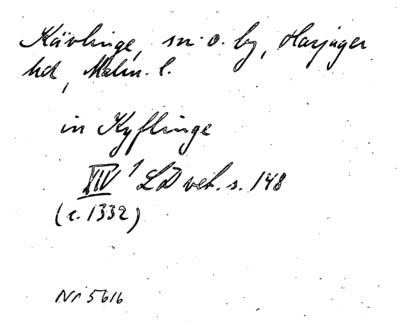 Kävlinge, sn o. by, Harjager
hd, Malm. l.
in Kyflinge
XIV 1 LD vet. s. 148
(c. 1332)
Nr 5616